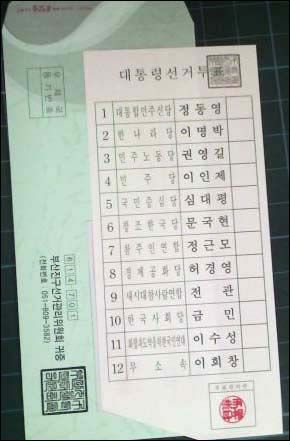 대통령선거투표
1 대통합민주신당 정동영
2 한나라당 이명박
3 민주노동당 권영길
4 민주당 이인제
5 국민중심당 심대평
6 창조한국당 문국현
7 참주인연합 정근모
8 경제공화당 허경영
9 새시대참사람연합 전관
10 한국사회당 금민
11 화합과도약을위한국민연대 이수성
12 무소속 이회창
우체국
등기번호
614-701
부산진구선거관리위원회 귀중
(전화번호 051-809-3582)